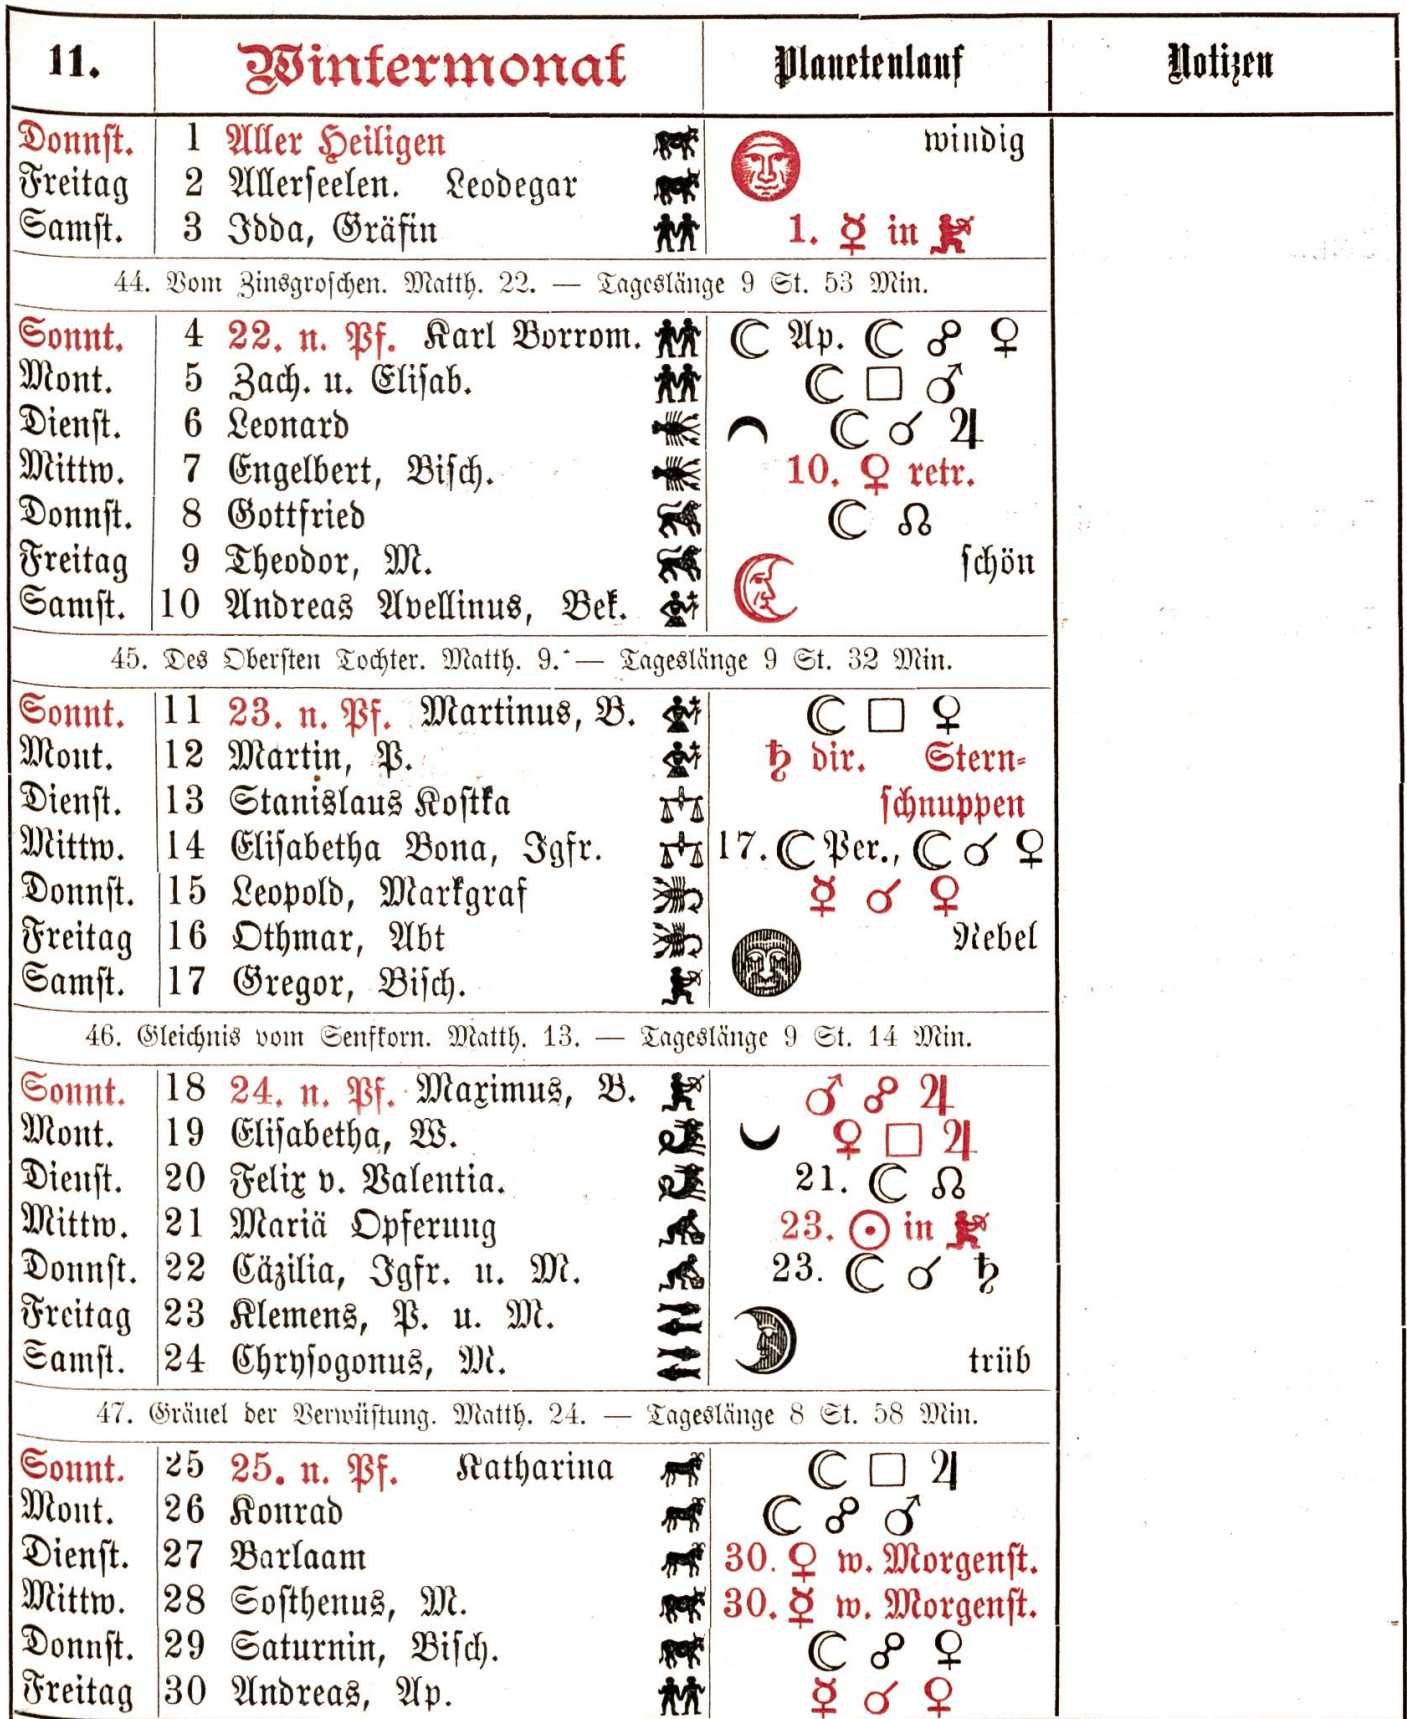 11. Wintermonat Planetenlauf Notizen
Donnst. 1 Aller Heiligen windig
Freitag 2 Allerseelen. Leodegar
Samst. 3 Idda, Gräfin 1. ☿ in ♐
44. Vom Zinsgroschen. Matth. 22. — Tageslänge 9 St. 53 Min.
Sonnt. 4 22. n. Pf. Karl Borrom. ☾ Ap. ☾ ☍ ♀
Mont. 5 Zach. u. Elisab. ☾ □ ♂
Dienst. 6 Leonard ☾ ☌ ♃
Mittw. 7 Engelbert, Bisch. 10. ♀ retr.
Donnst. 8 Gottfried ☾ ☊
Freitag 9 Theodor, M. schön
Samst. 10 Andreas Avellinus, Bek.
45. Des Obersten Tochter. Matth. 9. — Tageslänge 9 St. 32 Min.
Sonnt. 11 23. n. Pf. Martinus, B. ☾ □ ♀
Mont. 12 Martin, P. ♄ dir. Stern-
Dienst. 13 Stanislaus Kostka schnuppen
Mittw. 14 Elisabetha Bona, Igfr. 17. ☾ Per., ☾ ☌ ♀
Donnst. 15 Leopold, Markgraf ☿ ☌ ♀
Freitag 16 Othmar, Abt Nebel
Samst. 17 Gregor, Bisch.
46. Gleichnis vom Senfkorn. Matth. 13. — Tageslänge 9 St. 14 Min.
Sonnt. 18 24. n. Pf. Maximus, B. ♂ ☍ ♃
Mont. 19 Elisabetha, W. ♀ □ ♃
Dienst. 20 Felix v. Valentia. 21. ☾ ☊
Mittw. 21 Mariä Opferung 23. ☉ in ♐
Donnst. 22 Cäzilia, Igfr. u. M. 23. ☾ ☌ ♄
Freitag 23 Klemens, P. u. M.
Samst. 24 Chrysogonus, M. trüb
47. Gräuel der Verwüstung. Matth. 24. — Tageslänge 8 St. 58 Min.
Sonnt. 25 25. n. Pf. Katharina ☾ □ ♃
Mont. 26 Konrad ☾ ☍ ♂
Dienst. 27 Barlaam 30. ♀ w. Morgenst.
Mittw. 28 Sosthenus, M. 30. ☿ w. Morgenst.
Donnst. 29 Saturnin, Bisch. ☾ ☍ ♀
Freitag 30 Andreas, Ap. ☿ ☌ ♀